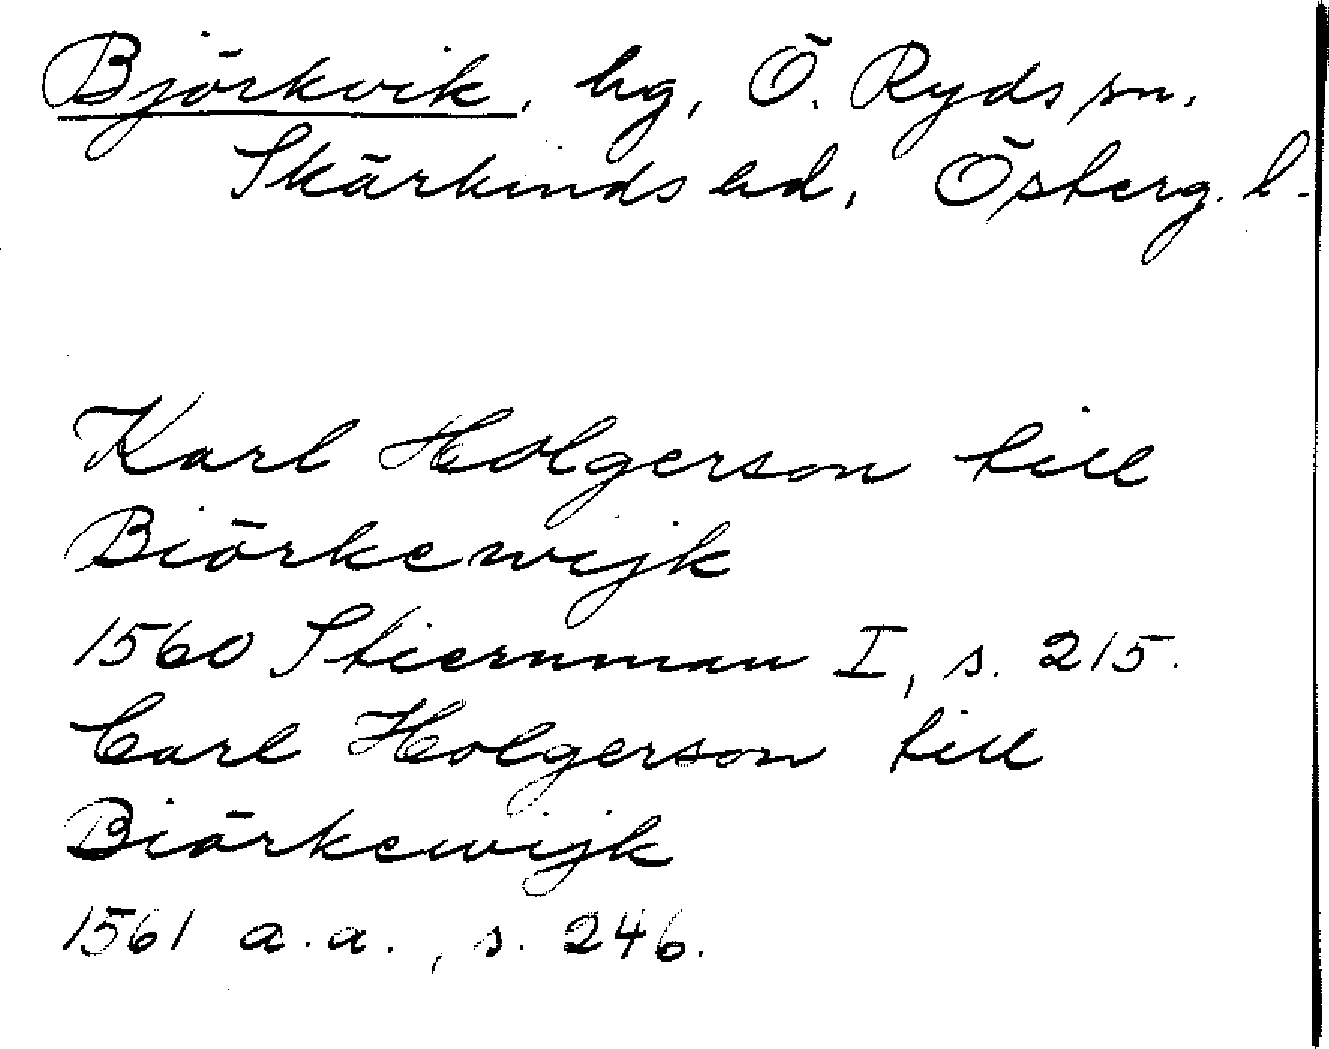 Björkvik, hg, Ö. Ryds sn.
Skärkinds hd, Österg. l.
Karl Holgerson till
Biörkewijk
1560 Stiernman I, s. 215.
Carl Holgerson till
Biörkewijk
1561 a.a., s. 246.